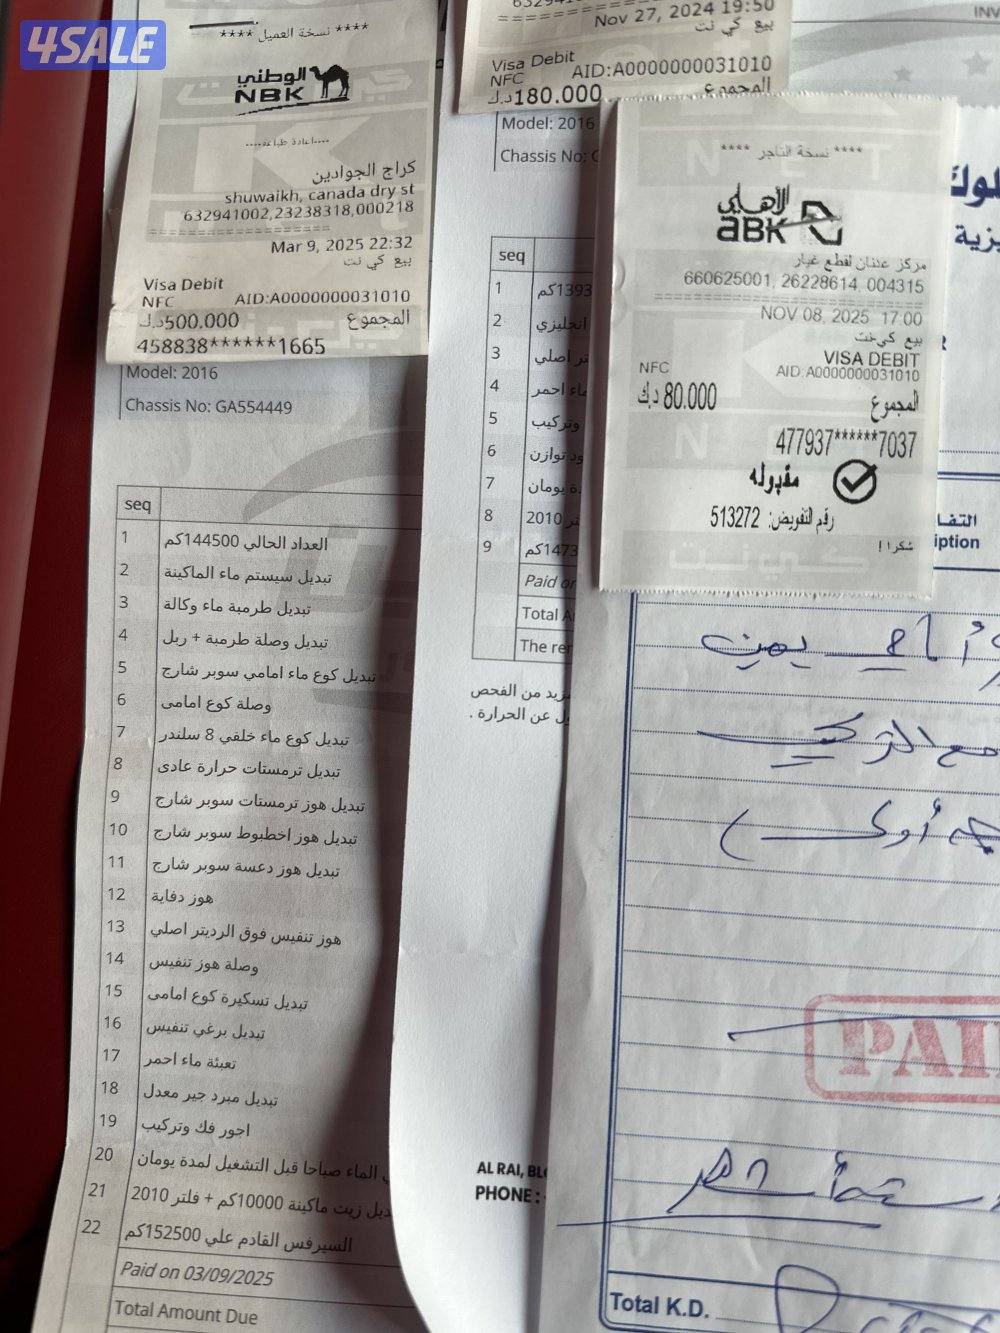 4SALE
**** نسخة العميل ****
الوطني
NBK
----اعادة طباعة----
كراج الجوادين
shuwaikh, canada dry st
632941002,23238318,000218
Mar 9, 2025 22:32
بيع كي نت
Visa Debit
NFC AID:A0000000031010
المجموع
500.000د.ك
458838******1665
Model: 2016
Chassis No: GA554449
seq
1 العداد الحالي 144500كم
2 تبديل سيستم ماء الماكينة
3 تبديل طرمبة ماء وكالة
4 تبديل وصلة طرمبة + ربل
5 تبديل كوع ماء امامي سوبر شارج
6 وصلة كوع امامى
7 تبديل كوع ماء خلفي 8 سلندر
8 تبديل ترمستات حرارة عادى
9 تبديل هوز ترمستات سوبر شارج
10 تبديل هوز اخطبوط سوبر شارج
11 تبديل هوز دعسة سوبر شارج
12 هوز دفاية
13 هوز تنفيس فوق الرديتر اصلي
14 وصلة هوز تنفيس
15 تبديل تسكيرة كوع امامى
16 تبديل برغي تنفيس
17 تعبئة ماء احمر
18 تبديل مبرد جير معدل
19 اجور فك وتركيب
20 الماء صباحا قبل التشغيل لمدة يومان
21 ديل زيت ماكينة 10000كم + فلتر 2010
22 السيرفس القادم علي 152500كم
Paid on 03/09/2025
Total Amount Due
Nov 27, 2024 19:50
بيع كي نت
Visa Debit
NFC AID:A0000000031010
المجموع
180.000د.ك
Model: 2016
Chassis No: G
seq
1 1393كم
2 انجليزي
3 تر اصلي
4 ماء احمر
5 وتركيب
6 ود توازن
7 ة يومان
8 تر 2010
9 1473كم
Paid on
Total A
The re
زيد من الفحص
ل عن الحرارة .
AL RAI, BL
PHONE :
INV
**** نسخة التاجر ****
الأهلي
aBK
مركز عدنان لقطع غيار
660625001, 26228614, 004315
NOV 08, 2025 17:00
بيع كي نت
VISA DEBIT
NFC AID:A0000000031010
المجموع
80.000 د.ك
477937******7037
مقبوله
رقم التفويض: 513272
شكرا !
لوك
يزية
التفا
iption
أمامي يمين
مع التركيب
أولى )
PAI
Total K.D.